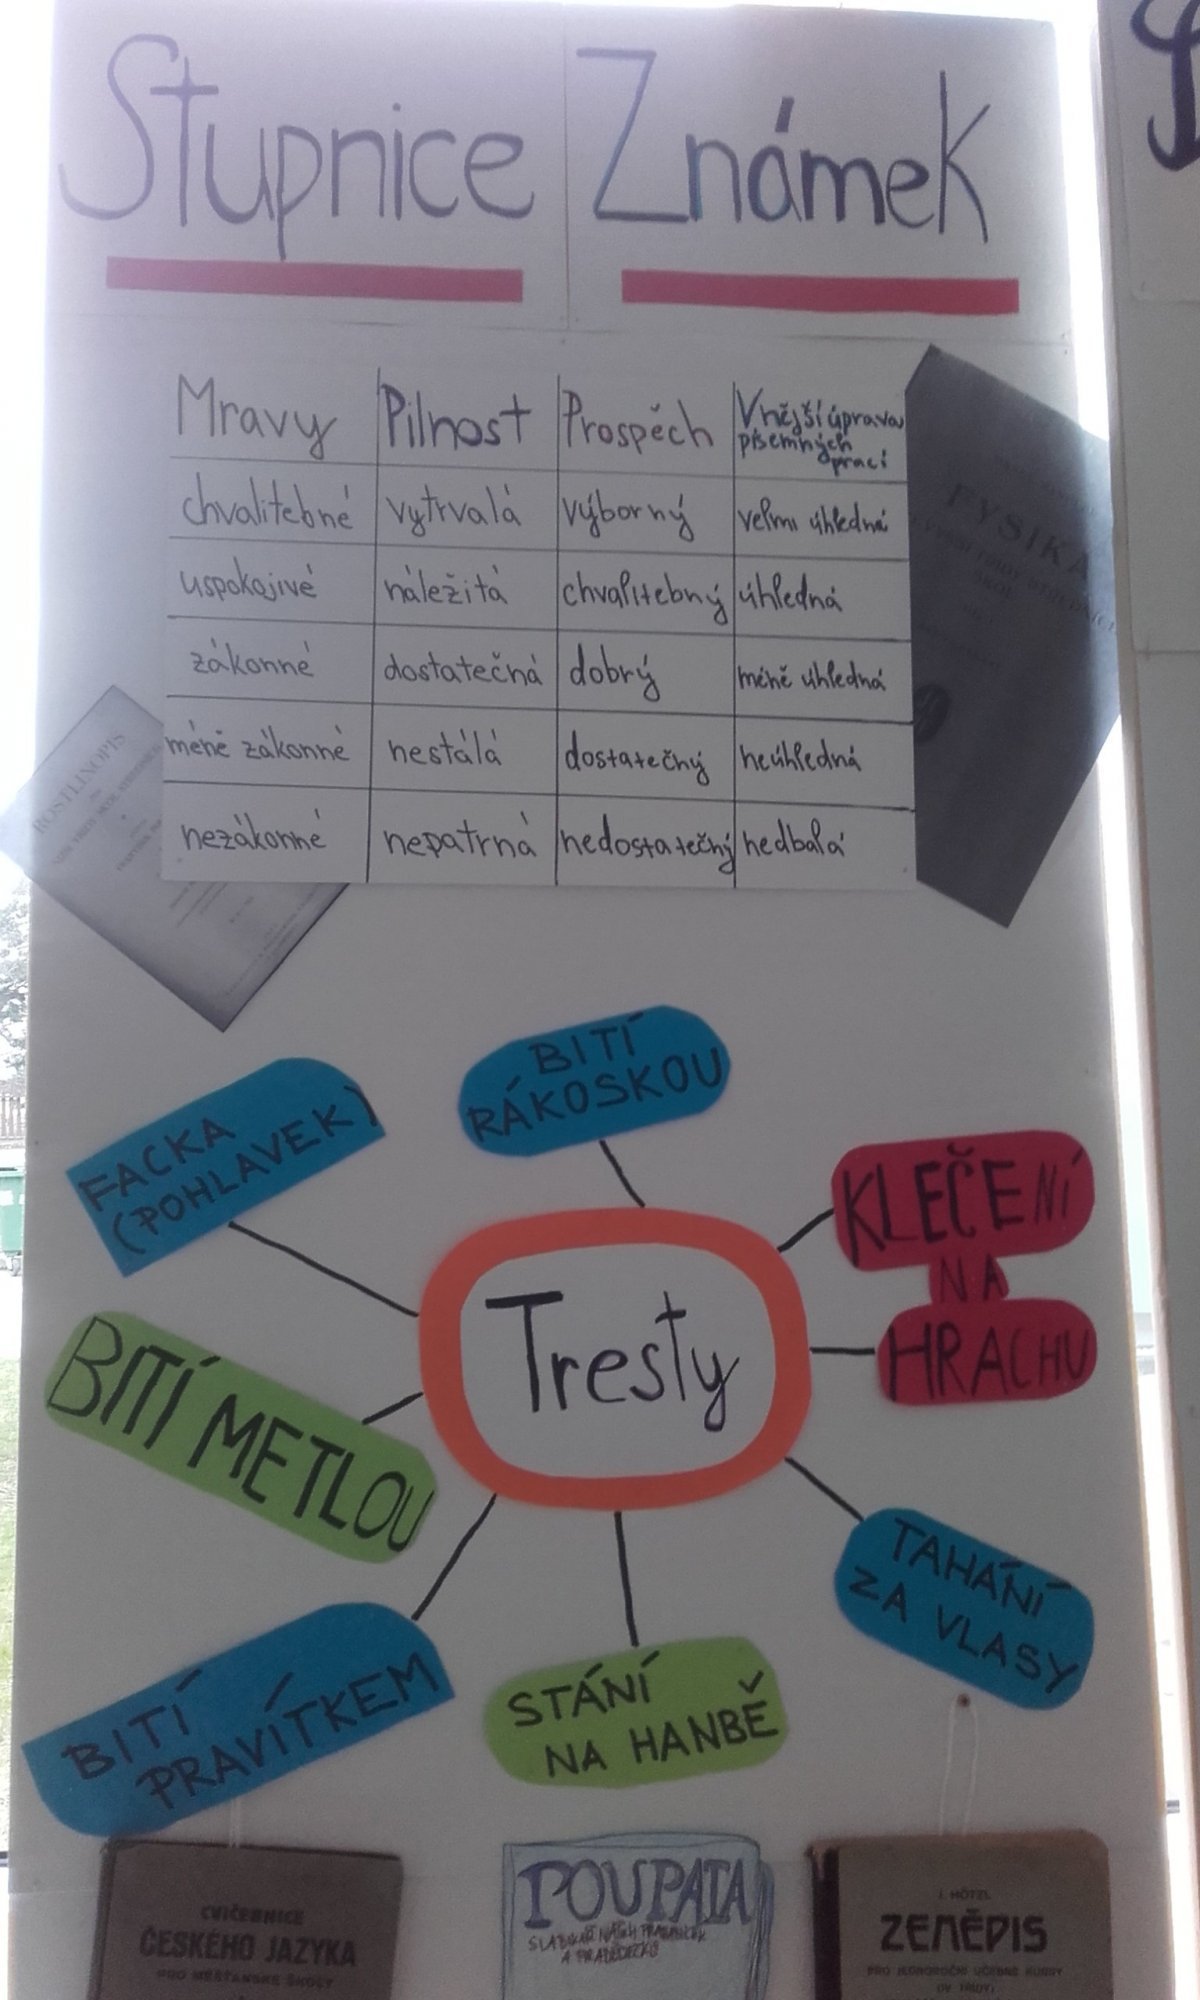 Stupnice Známek
Mravy Pilnost Prospěch Vnější úprava
písemných
prací
chvalitebné vytrvalá výborný velmi úhledná
uspokojivé náležitá chvalitebný úhledná
zákonné dostatečná dobrý méně úhledná
méně zákonné nestálá dostatečný neúhledná
nezákonné nepatrná nedostatečný nedbalá
FYSIKA
ROSTLINOPIS
BITÍ
RÁKOSKOU
FACKA
(POHLAVEK)
KLEČENÍ
NA
HRACHU
Tresty
BITÍ METLOU
TAHÁNÍ
ZA VLASY
BITÍ
PRAVÍTKEM
STÁNÍ
NA HANBĚ
CVIČEBNICE
ČESKÉHO JAZYKA
PRO MĚŠŤANSKÉ ŠKOLY
POUPATA
SLABIKÁŘ NAŠICH PRABABIČEK
A PRADĚDEČKŮ
J. HÖTZL
ZEMĚPIS
PRO JEDNOROČNÍ UČEBNÉ KURSY
(IV. TŘÍDY)